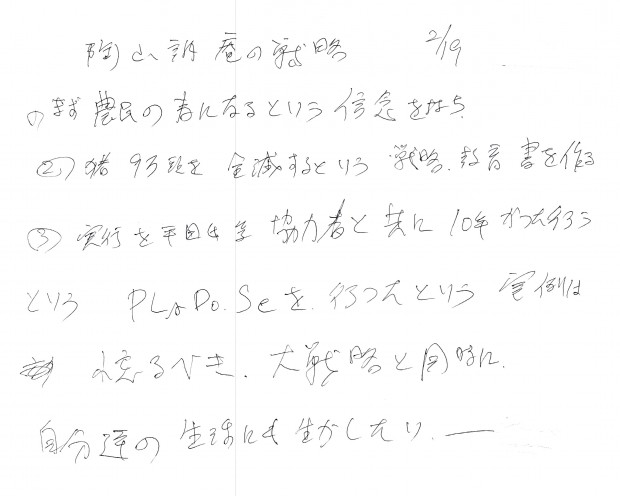 陶山訥庵の戦略 2/19
① 農民の為になるという信念を持ち
② 猪9万頭を全滅するという戦略.教育書を作る
③ 実行を平田 協力者と共に10年かった行う
という PLAn Do. Seeを.行ったという実例は
恐るべき.大戦略と同時に.
自分達の生活にも生かしたい.